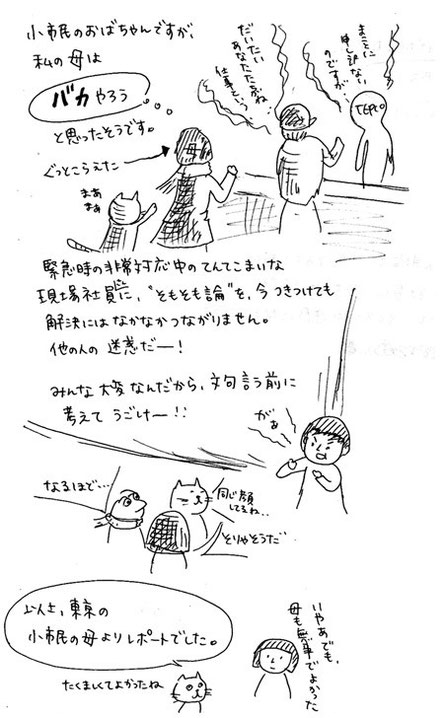 小市民のおばちゃんですが、
私の母は
バカやろう
と思ったそうです。
ぐっとこらえた
母
まあ
まぁ
だいたい
あなたたちがね
仕事という
まことに
申し訳ない
のですが…
TEPCO
緊急時の非常対応中のてんてこまいな
現場社員に、“そもそも論”を、今つきつけても
解決にはなかなかつながりません。
他の人の迷惑だー!
みんな大変なんだから、文句言う前に
考えてうごけー!!
がぁ
なるほど…
同じ顔
してるね…
そりゃそうだ
以上、東京の
小市民の母よりレポートでした。
たくましくてよかったね
いやあでも、
母も無事でよかった